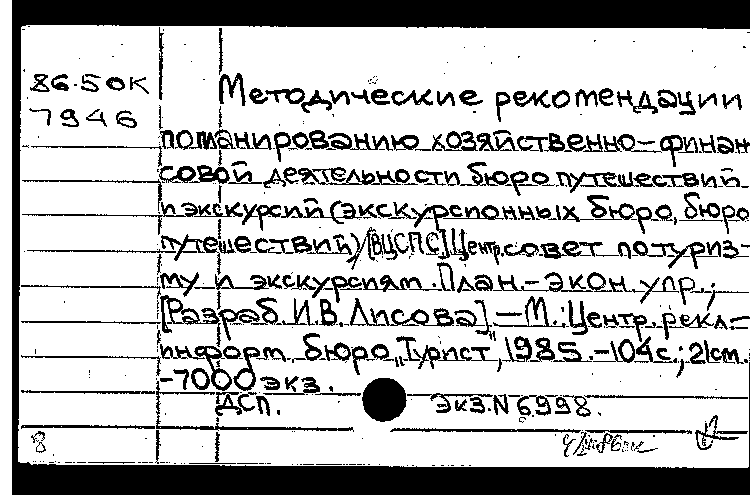 86.5 ОК
7946
Методические рекомендации
по планированию хозяйственно-финан
совой деятельности бюро путешествий
и экскурсий (экскурсионных бюро, бюро
путешествий) / [ВЦСПС] Центр. совет по туриз-
му и экскурсиям. План.-экон. упр.;
[Разраб. И.В. Лисова]. — М.: Центр. рекл.-
информ. бюро „Турист“, 1985. -104 с.; 21 см.
-7000 экз.
ДСП.
Экз. N 6.998.
8